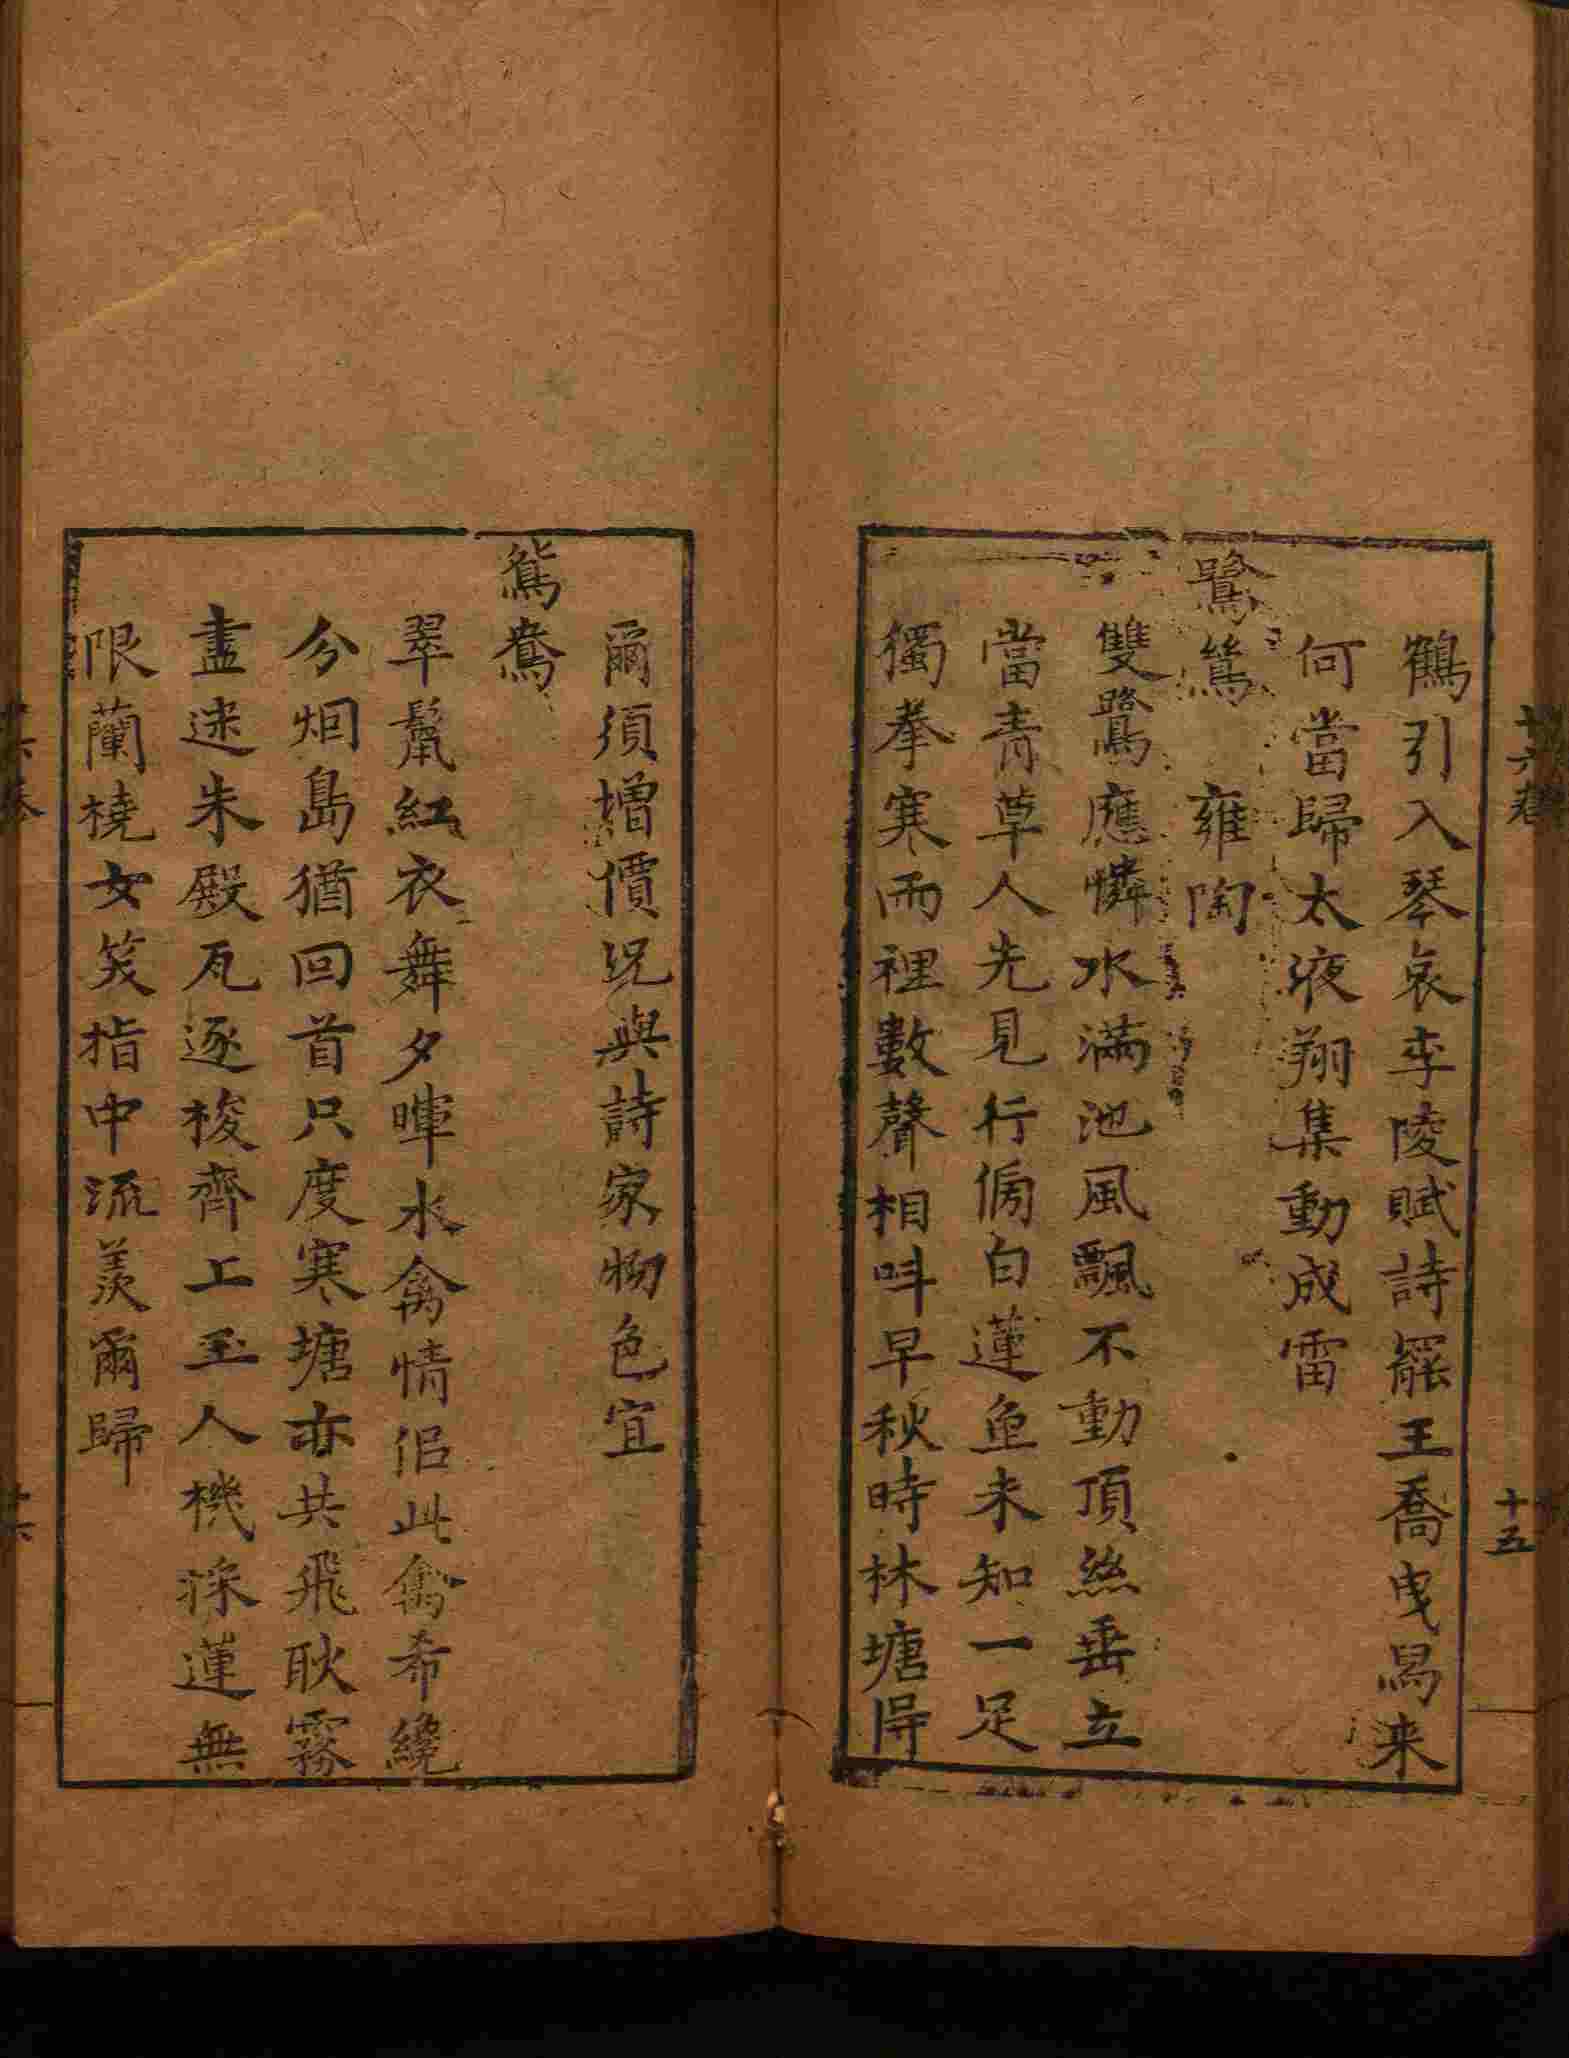 鶴引入琴哀李陵賦詩罷王喬曳舄来
何當歸太液翔集動成雷
鷺鷥　雍陶
雙鷺應憐水滿池風飄不動頂絲垂立
當青草人先見行傍白蓮魚未知一足
獨拳寒雨裡數聲相呌早秋時林塘得
十六卷
十五
爾須增價况與詩家物色宜
鴛鴦
翠鬣紅衣舞夕暉水禽情侣此禽希纔
分烟島猶回首只度寒塘亦共飛耿霧
盡迷朱殿瓦逐梭齊上玉人機採蓮無
限蘭橈女笑指中流羨爾歸